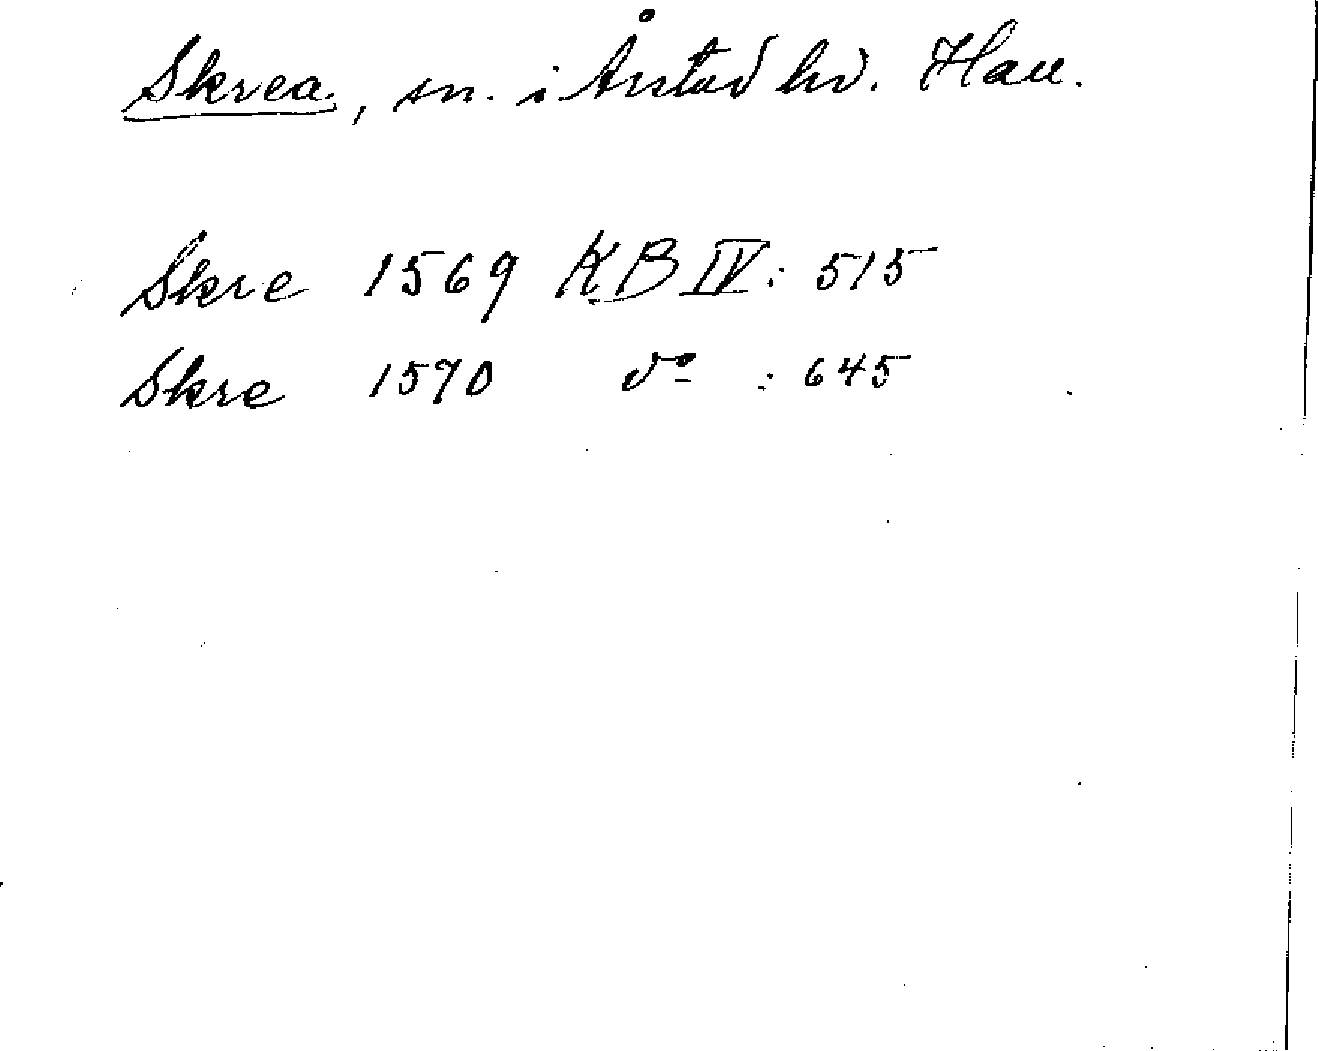 Skrea, sn. i Årstad hd. Hall.
Skre 1569 KB IV: 515
Skre 1570 do : 645